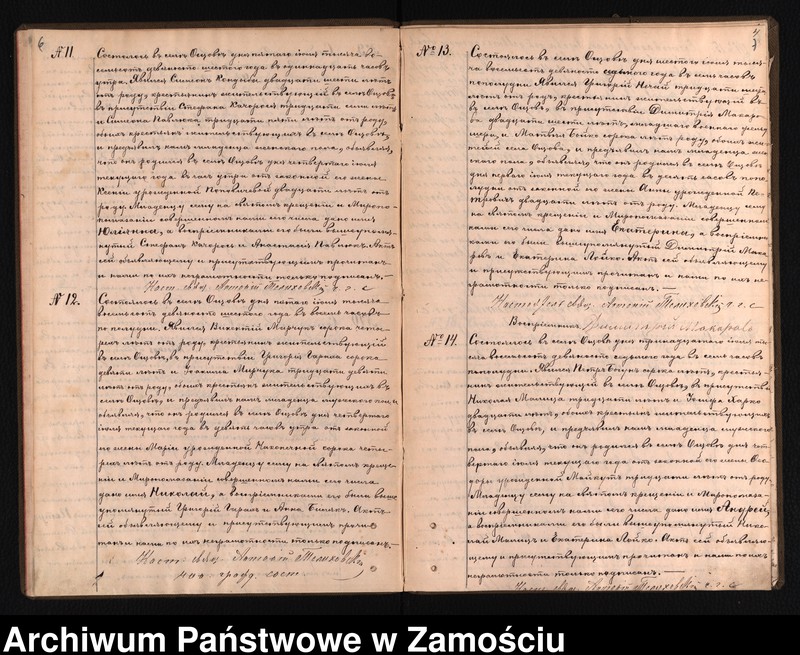 6
№ 11
Состоялось въ селѣ Ощовѣ дня пятаго іюня тысяча во-
семьсотъ девяносто шестого года въ одинадцать часовъ
утра. Явился Симеонъ двадцати шести лѣтъ
отъ роду, крестьянинъ жительствующій въ селѣ Ощовѣ,
въ присутствіи Стефана Качоровъ тридцати лѣтъ
и Симеона Павлюка, тридцати пяти лѣтъ отъ роду,
обоихъ крестьянъ жительствующихъ въ селѣ Ощовѣ,
и предъявилъ намъ младенца женскаго пола, объявляя,
что онъ родился въ селѣ Ощовѣ дня четвертаго іюня
текущаго года въ утра отъ законной его жены
Ксеніи урожденной Поповичевой двадцати лѣтъ отъ
роду. Младенцу сему на святомъ крещеніи и Миропо-
мазаніи совершенномъ нами сего числа дано имя
Юліанна, а воспріемниками его были вышеупомя-
нутый Стефанъ Качоровъ и Анастасія Павлюкъ. Актъ
сей объявляющему и присутствующимъ прочитанъ
и нами по ихъ неграмотности только подписанъ. —
Наст. Свящ. Антоній Телиховскій
№ 12.
Состоялось въ селѣ Ощовѣ дня пятаго іюня тысяча
восемьсотъ девяносто шестого года въ восемь часовъ
по полудни. Явился Викентій Марчукъ сорока четы-
рехъ лѣтъ отъ роду крестьянинъ жительствующій
въ селѣ Ощовѣ, въ присутствіи Григорія Гараля сорока
девяти лѣтъ и Іоанна Марчука тридцати девяти
лѣтъ отъ роду, обоихъ крестьянъ жительствующихъ въ
селѣ Ощовѣ, и предъявилъ намъ младенца мужескаго пола,
объявляя, что онъ родился въ селѣ Ощовѣ дня четвертаго
іюня текущаго года въ девять часовъ утра отъ законной
его жены Маріи урожденной Наконечной сорока четы-
рехъ лѣтъ отъ роду. Младенцу сему на святомъ креще-
ніи и Миропомазаніи совершенномъ нами сего числа
дано имя Николай, а воспріемниками его были выше
упомянутый Григорій Гараль и Анна Сылякъ. Актъ
сей объявляющему и присутствующимъ прочи-
танъ и нами по ихъ неграмотности только подписанъ. —
Наст. Свящ. Антоній Телиховскій
7
№ 13.
Состоялось въ селѣ Ощовѣ дня шестого іюня тыся-
ча восемьсотъ девяносто года въ семь часовъ
пополудни. Явился Григорій Нечай тридцати
лѣтъ отъ роду, крестьянинъ жительствующій въ
въ селѣ Ощовѣ, въ присутствіи Димитрія Макаро-
ва двадцати шести лѣтъ,
и Матвея Бойко сорока лѣтъ роду, обоихъ жи-
телей села Ощова, и предъявилъ намъ младенца жен-
скаго пола, объявляя, что онъ родился въ селѣ Ощовѣ
дня перваго іюня текущаго года въ десять часовъ попо-
лудни отъ законной его жены Анны урожденной Пе-
тровичъ двадцати лѣтъ отъ роду. Младенцу сему
на святомъ крещеніи и Миропомазаніи совершенномъ
нами сего числа дано имя Екатерина, а воспріемни-
ками его были вышеупомянутый Димитрій Мака-
ровъ и Екатерина Лойко. Актъ сей объявляющему
и присутствующимъ прочитанъ и нами по ихъ не-
грамотности подписанъ. —
Настоятель Свящ. Антоній Телиховскій
Воспріемникъ Димитрій Макаровъ
№ 14.
Состоялось въ селѣ Ощовѣ дня тринадцатаго іюня ты-
сяча восемьсотъ девяносто года въ семь часовъ
пополудни. Явился Петръ сорока лѣтъ, крестья-
нинъ жительствующій въ селѣ Ощовѣ, въ присутствіи
Николая Маница тридцати лѣтъ и Харко
двадцати лѣтъ, обоихъ крестьянъ жительствующихъ
въ селѣ Ощовѣ, и предъявилъ намъ младенца мужескаго
пола, объявляя, что онъ родился въ селѣ Ощовѣ дня чет-
вертаго іюня текущаго года отъ законной его жены Ѳео-
доры урожденной Майкутъ тридцати лѣтъ отъ роду.
Младенцу сему на святомъ крещеніи и Миропомаза-
ніи совершенномъ нами сего числа дано имя Андрей,
а воспріемниками его были вышеупомянутый Нико-
лай Маницъ и Екатерина Лойко. Актъ сей объявляю-
щему и присутствующимъ прочитанъ и нами по ихъ
неграмотности только подписанъ. —
Наст. Свящ. Антоній Телиховскій
Archiwum Państwowe w Zamościu